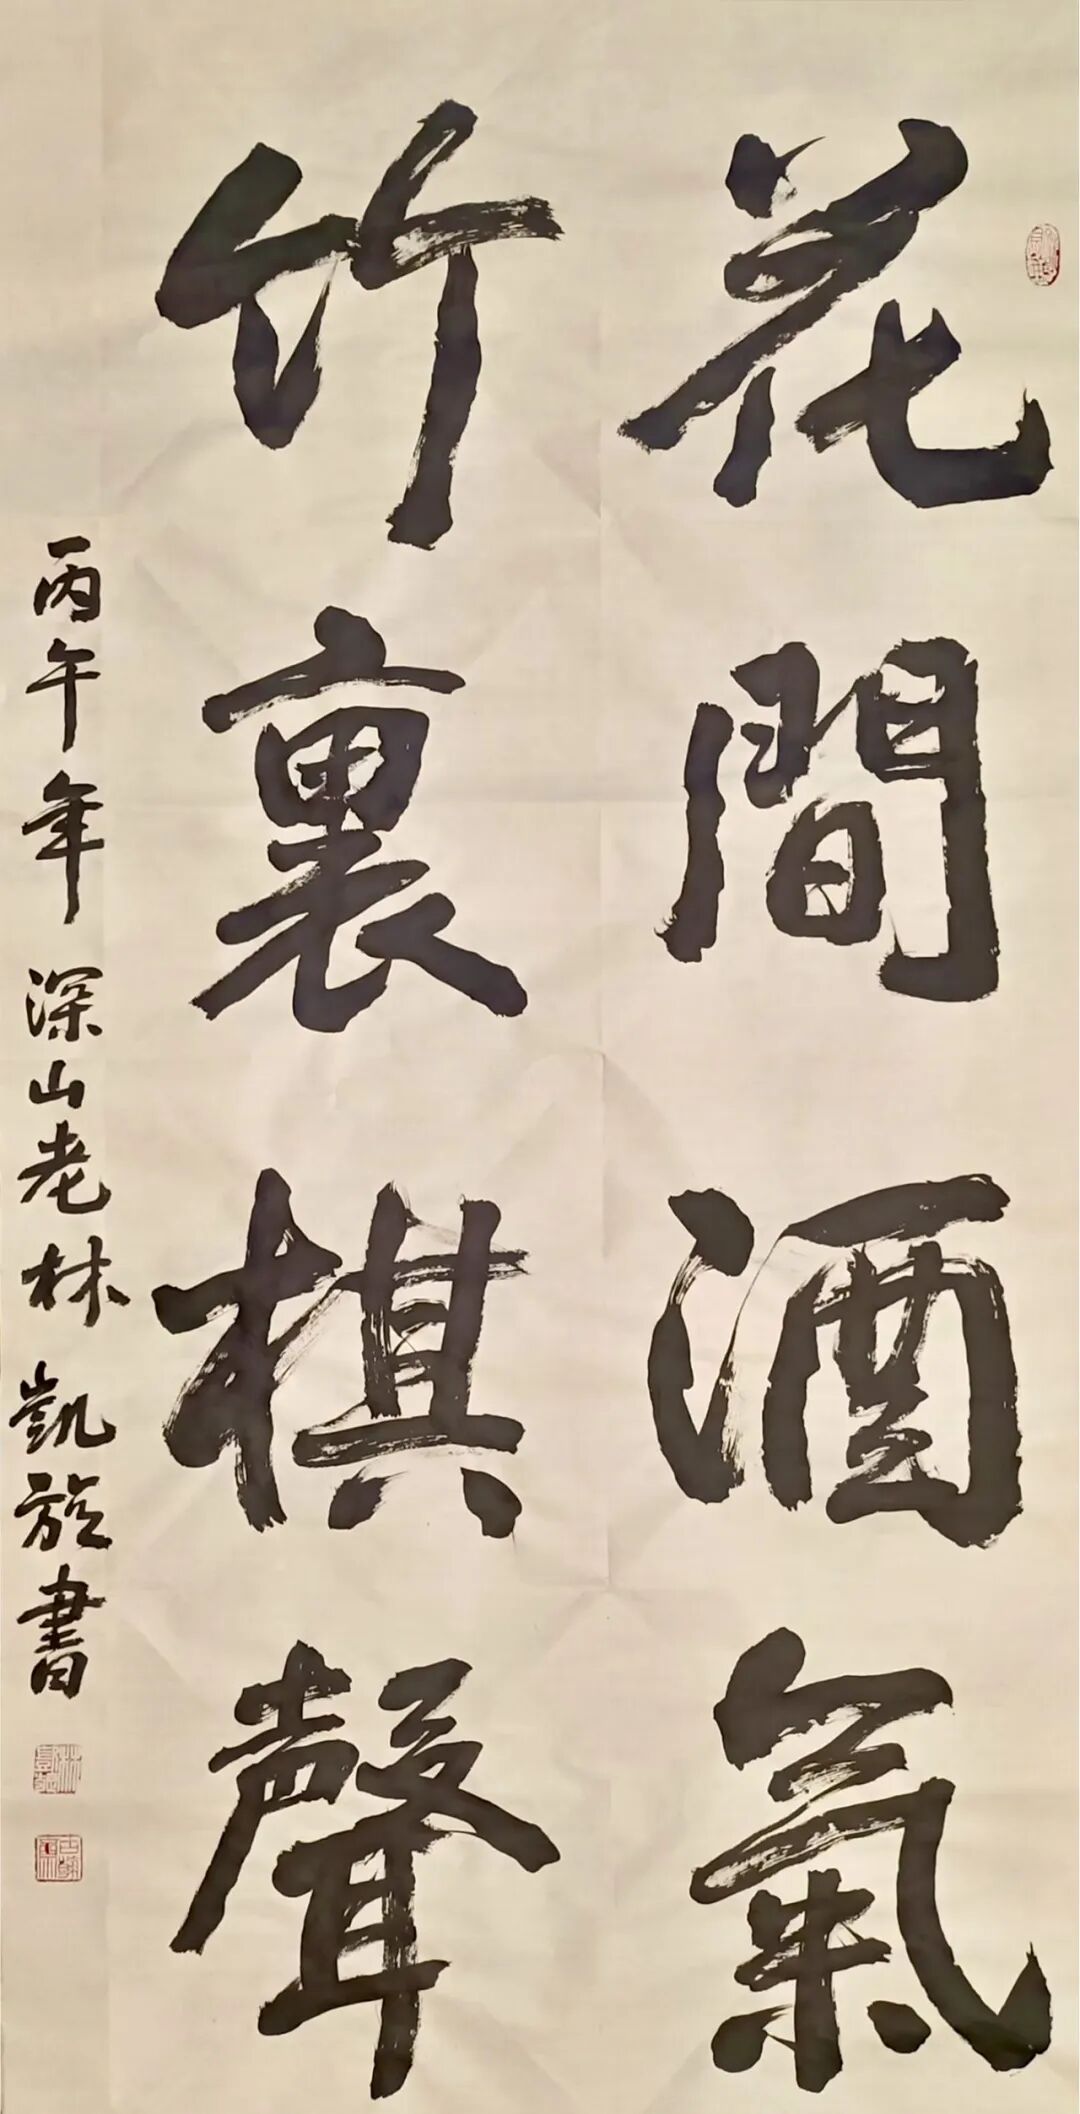 花間酒氣
竹裏棋聲
丙午年 深山老林 凱旋書